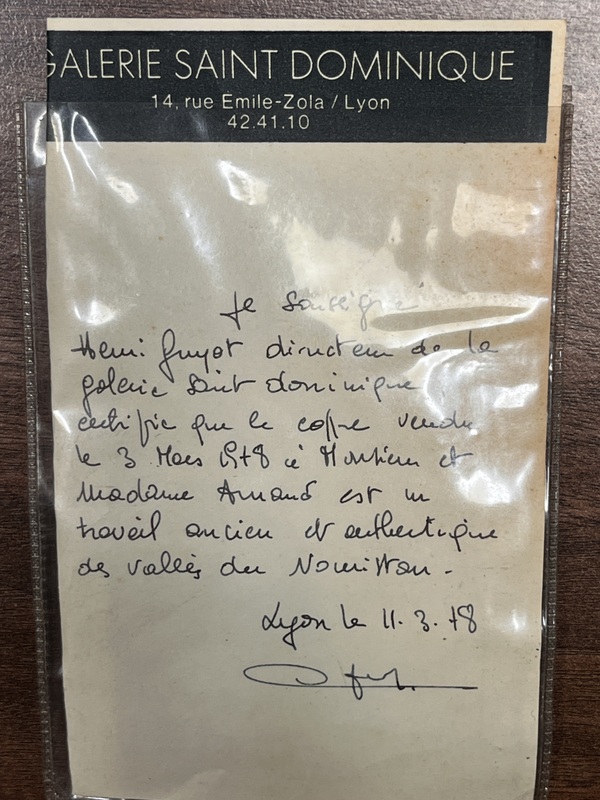 GALERIE SAINT DOMINIQUE
14, rue Émile-Zola / Lyon
42.41.10
Je soussigné
Henri Guyot directeur de la
galerie Saint dominique
certifie que le coffre vendu
le 3 Mars 1978 à Monsieur et
Madame Arnaud est un
travail ancien et authentique
des vallées du Nouristan.
Lyon le 11.3.78